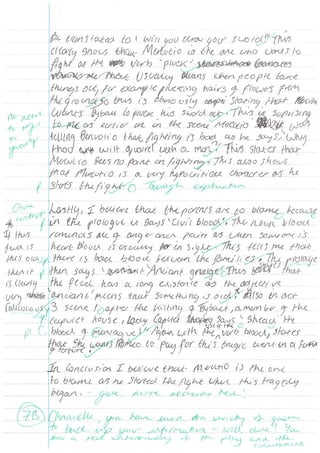 Be translated to 'I will you draw your sword'. This
clearly shows that Mercutio is the one who wants to
fight as the verb 'pluck'
there usually means when people take
things out, for example plucking hairs or flowers from
the ground so this is obviously stating that
wants Tybalt to pluck his sword out. This is suprising
to me as earlier on in the scene Mercutio was
telling Benvolio that fighting is bad as he says 'Why
thou wilt quarrel with a man'. This states that
Mercutio sees no point in fighting. This also shows
that Mercutio is a very hypocritical character as he
starts the fight. Thorough explanation
Lastly, I believe that the parents are to blame because
in the prologue it says 'civil blood'. The noun blood
reminds me of anger and pain as when someone is
hurt blood is usually in sight. This tells me that
there is bad blood between the families. The prologue
then says 'Ancient grudge'. This that
the feud has a long existence as the adjective
ancient means that something is old. Also in act
3 scene 1, after the killing of Tybalt, a member of the
capulet house, Lady Capulet says 'Shed the
blood of montague'. Again with the verb blood, states
that she wants to pay for this tragic event in a form
of torture.
In Conclusion I believe that Mercutio is the one
to blame as he started the fight when this tragedy
began. - give more reasons here!
7B you have used a variety of quotes
to back up your information - well done! You
show a real understanding of the play and the